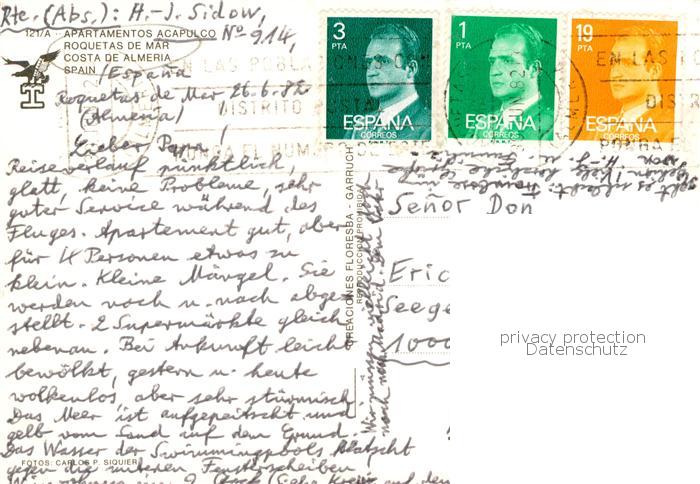 Rte. (Abs.): H.-J. Sidow,
121/A - APARTAMENTOS ACAPULCO Nº 914,
ROQUETAS DE MAR
COSTA DE ALMERIA
SPAIN / España
Roquetas de Mar 26.6.82
(Almería)
Lieber Papa!
Reiseverlauf pünktlich,
glatt, keine Probleme, sehr
guter Service während des
Fluges. Apartement gut, aber
für 4 Personen etwas zu
klein. Kleine Mängel. Sie
werden noch u. nach abge-
stellt. 2 Supermärkte gleich
nebenan. Bei Ankunft leicht
bewölkt, gestern u. heute
wolkenlos, aber sehr stürmisch
Das Meer ist aufgepeitscht und
gelb vom Sand auf dem Grund.
Das Wasser der Swimmingpools klatscht
FOTOS: CARLOS P. SIQUIER
gegen die unteren Fensterscheiben
CREACIONES FLORESBA - GARRUCHA
REPRODUCCION PROHIBIDA
3
PTA
ESPAÑA
CORREOS
1
PTA
ESPAÑA
CORREOS
19
PTA
ESPAÑA
CORREOS
EN LAS POBLACIONES CON
DISTRITO POSTAL
PONGA EL NUMERO
EN LAS
Señor Don
Eric
Seege
1000
privacy protection
Datenschutz